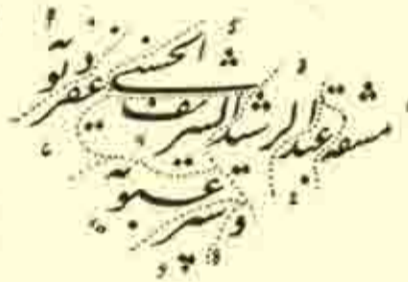 مشقه عبد الرشيد الشريف الحسني غفر ذنوبه
وستر عيوبه